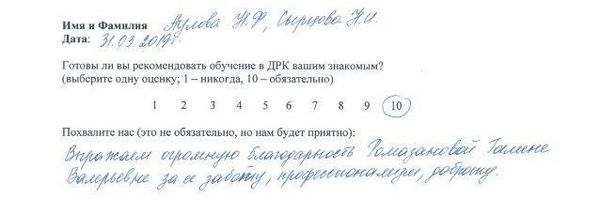 Имя и Фамилия Аулова Н.Ф, Сырцова Н.И.
Дата: 31.03.2019г.
Готовы ли вы рекомендовать обучение в ДРК вашим знакомым?
(выберите одну оценку; 1 – никогда, 10 – обязательно)
1 2 3 4 5 6 7 8 9 10
Похвалите нас (это не обязательно, но нам будет приятно):
Выражаем огромную благодарность Ромазановой Галине
Валерьевне за ее заботу, профессионализм, доброту.